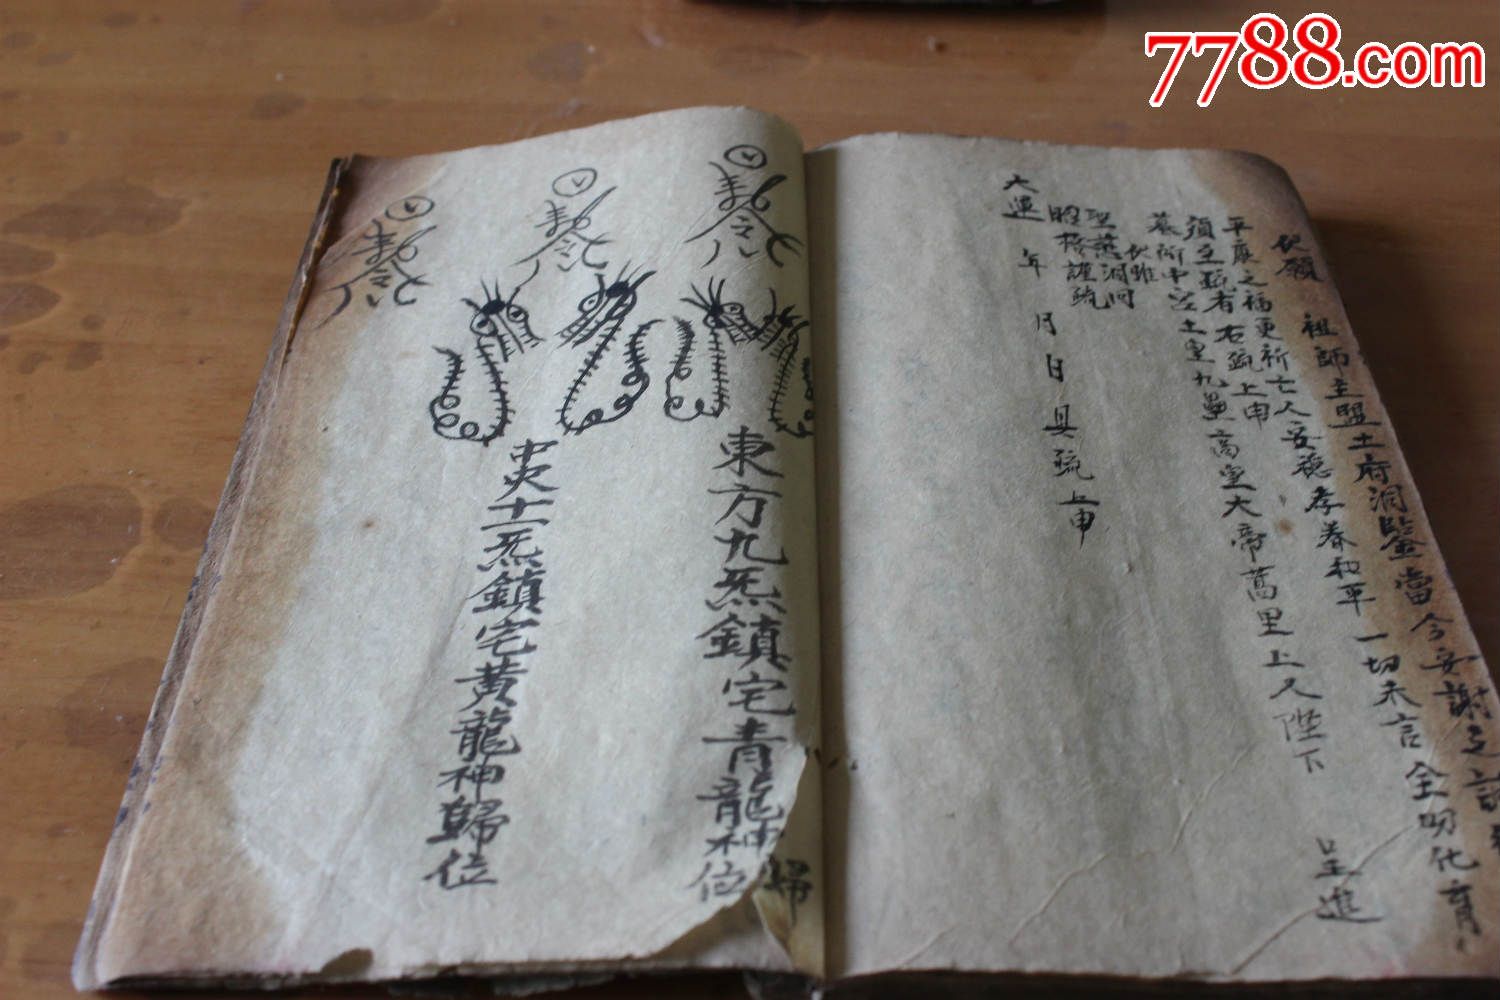 7788.com
伏願 祖師主盟土府洞鑒當今安謝之
平康之福更祈亡人安穩存眷和平一切未言全叨化育
須至疏者右疏上申
墓所中宮土皇九壘高皇大帝萬里上久陛下 呈進
伏惟
聖慈洞回
昭格謹疏
大運 年 月 日具疏上申
東方九炁鎮宅青龍神歸位
中央十二炁鎮宅黃龍神歸位